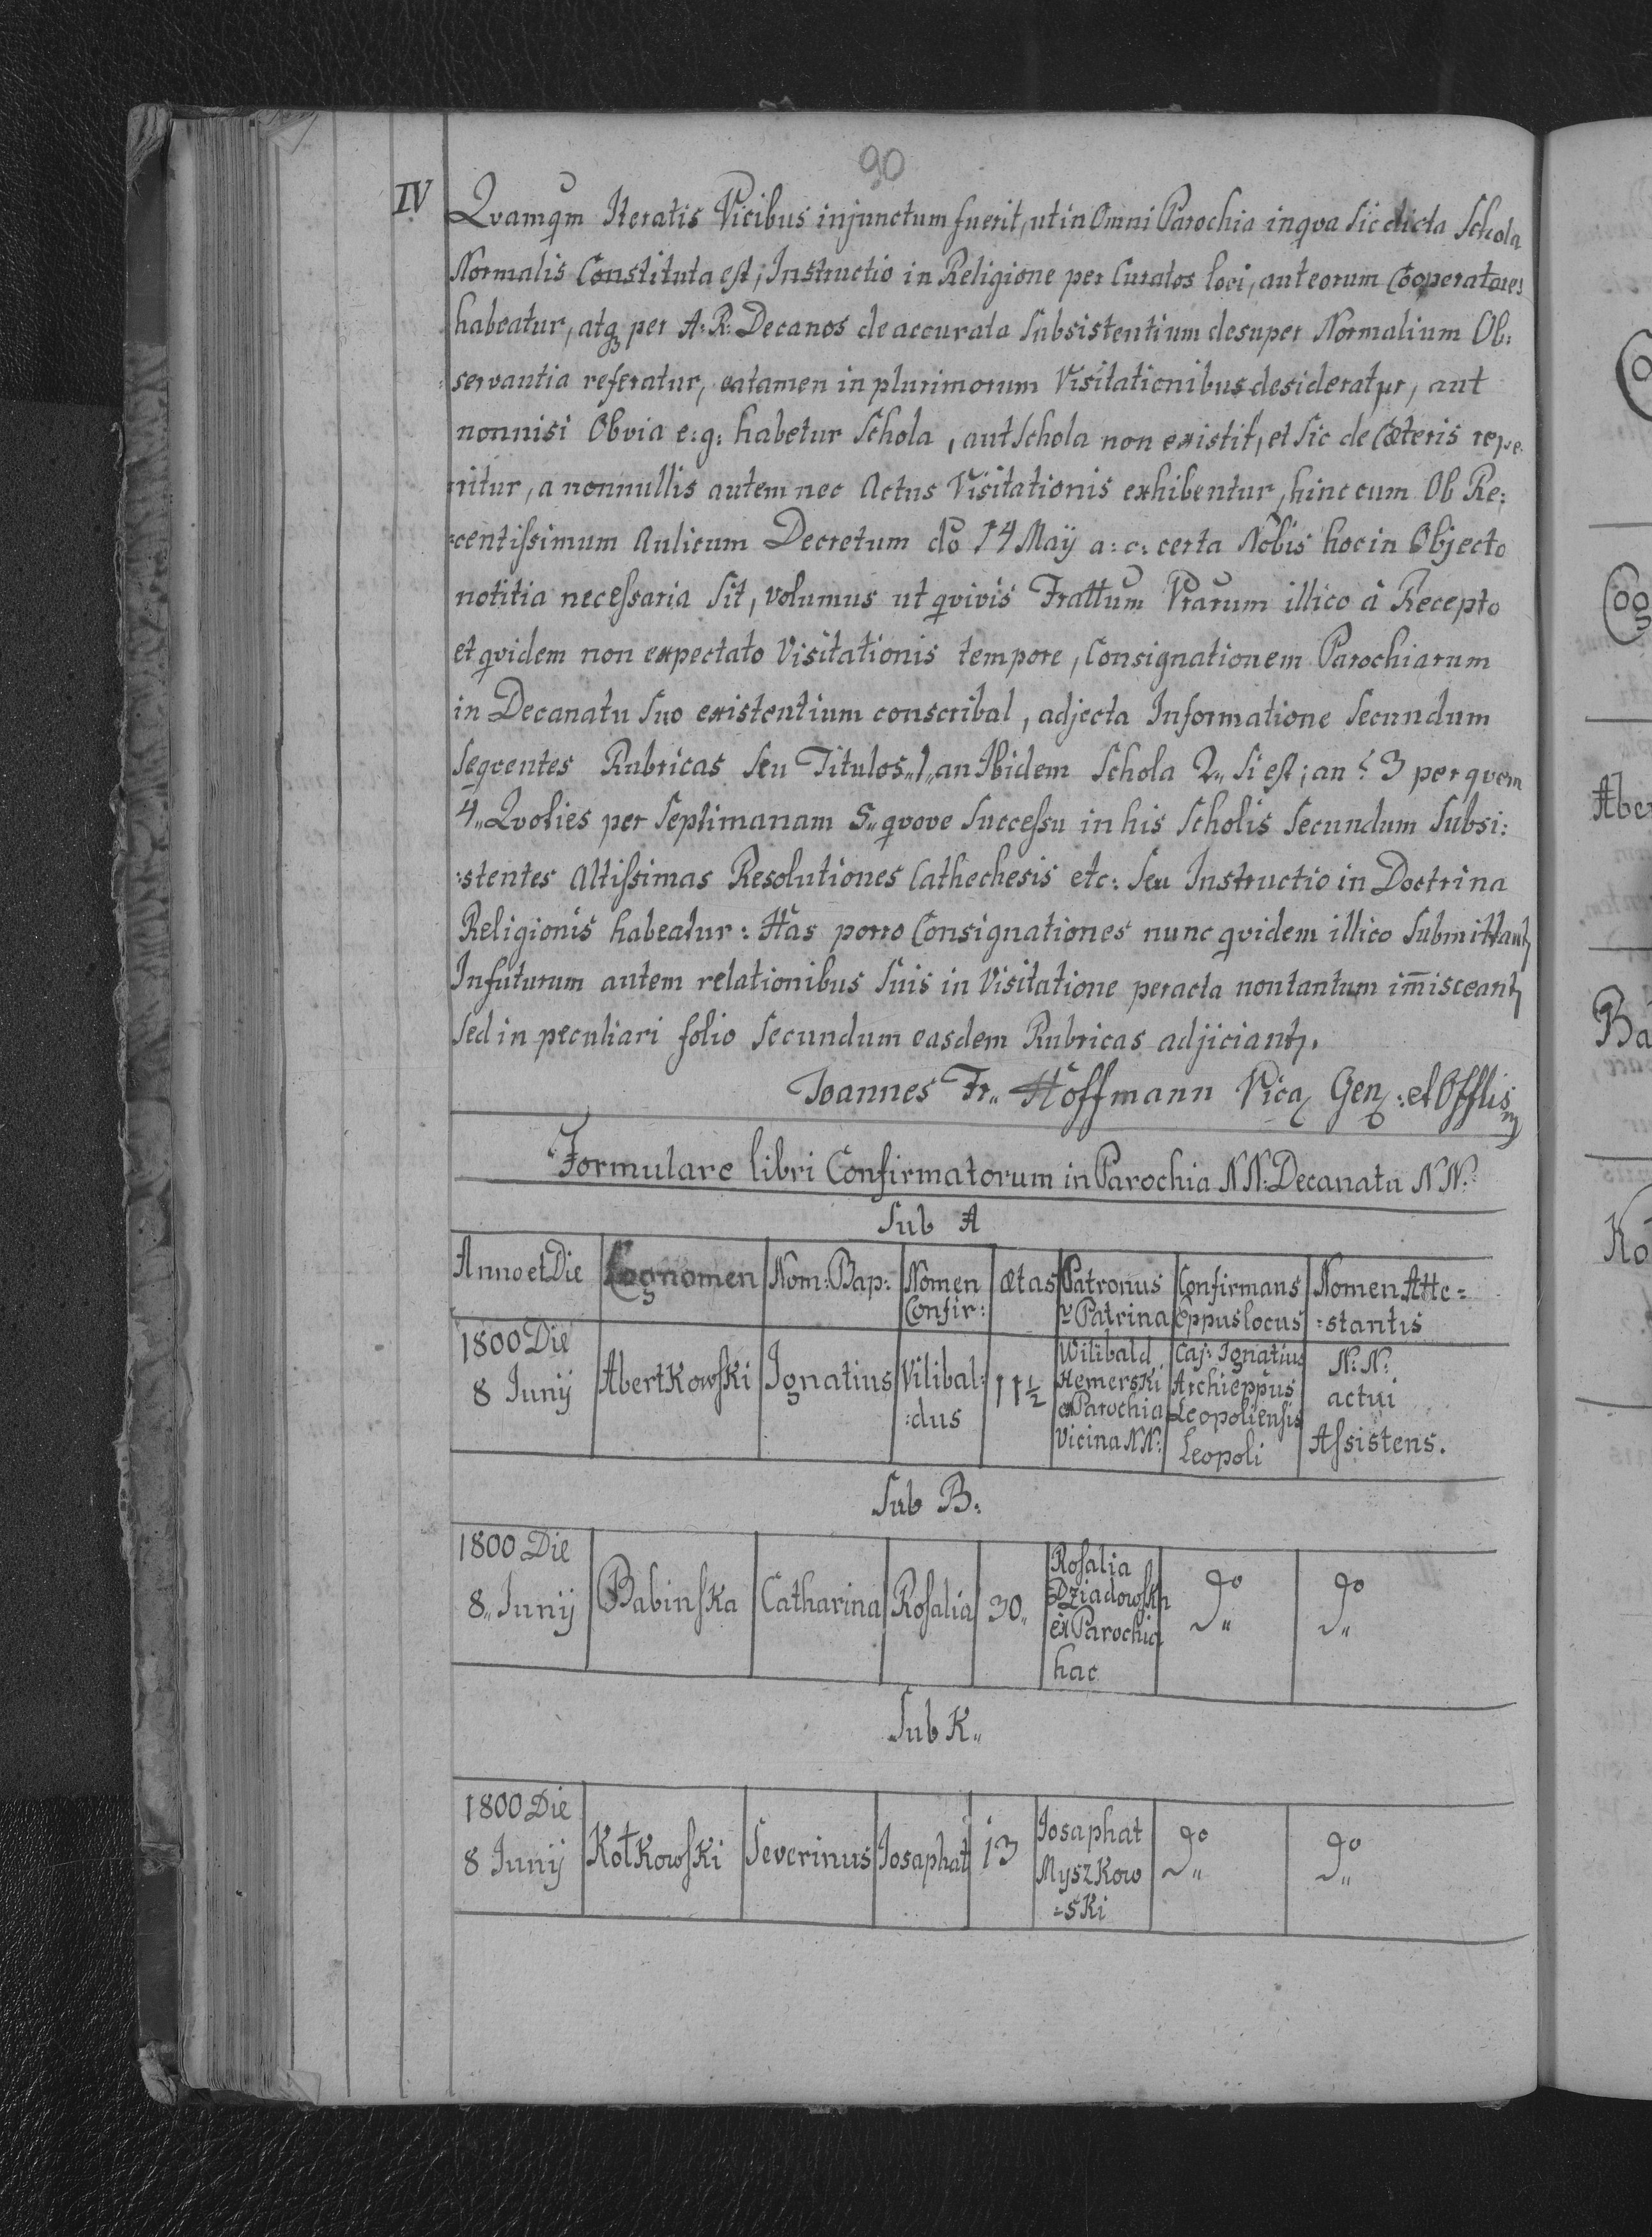 90
IV Qvamqm Iteratis Vicibus injunctum fuerit, ut in Omni Parochia in qva sic dicta Schola
Normalis Constituta est, Instructio in Religione per Curatos loci, aut eorum Cooperatores
habeatur, atq; per A: R: Decanos de accurata subsistentium desuper Normalium Ob:
servantia referatur, ea tamen in plurimorum Visitationibus desideratur, aut
nonnisi Obvia e: g: habetur Schola, aut Schola non existit, et sic de Cæteris repe
ritur, a nonnullis autem nec Actus Visitationis exhibentur, hinc cum Ob Re:
:centissimum Aulicum Decretum dō 14 Maÿ a: c: certa Nobis hoc in Objecto
notitia necessaria sit, volumus ut qvivis Frattum Vrarum illico à Recepto
et qvidem non expectato Visitationis tempore, Consignationem Parochiarum
in Decanatu suo existentium conscribat, adjecta Informatione secundum
seqventes Rubricas seu Titulos „1„ an Ibidem Schola 2„ si est; an ? 3 per qvem
4„ Qvoties per Septimanam 5„ qvove Successu in his Scholis secundum subsi:
:stentes Altissimas Resolutiones Cathechesis etc: seu Instructio in Doctrina
Religionis habeatur: Has porro Consignationes nunc qvidem illico submittant
In futurum autem relationibus suis in Visitatione peracta non tantum im̄isceant
sed in peculiari folio secundum easdem Rubricas adjiciant.
Ioannes Fr„ Hoffmann Vica Gen: et Offlis
Formulare libri Confirmatorum in Parochia N N: Decanatu N N:
Sub A
Anno et Die Cognomen Nom: Bap: Nomen Confir: Ætas Patronus v Patrina Confirmans Eppus locus Nomen Atte=
=stantis
1800 Die 8 Junij Abertkowski Ignatius Vilibal:
:dus 11½ Wilibald Hemerski ex Parochia Vicina NN: Caj: Ignatius Archieppus Leopoliensis Leopoli N: N: actui Assistens.
Sub B:
1800 Die 8„ Junij Babinska Catharina Rosalia 30„ Rosalia Dziadowska ex Parochia hac do do
Sub K„
1800 Die 8 Junij Kołkowski Severinus Josaphat 13 Josaphat Myszkow
=ski do do